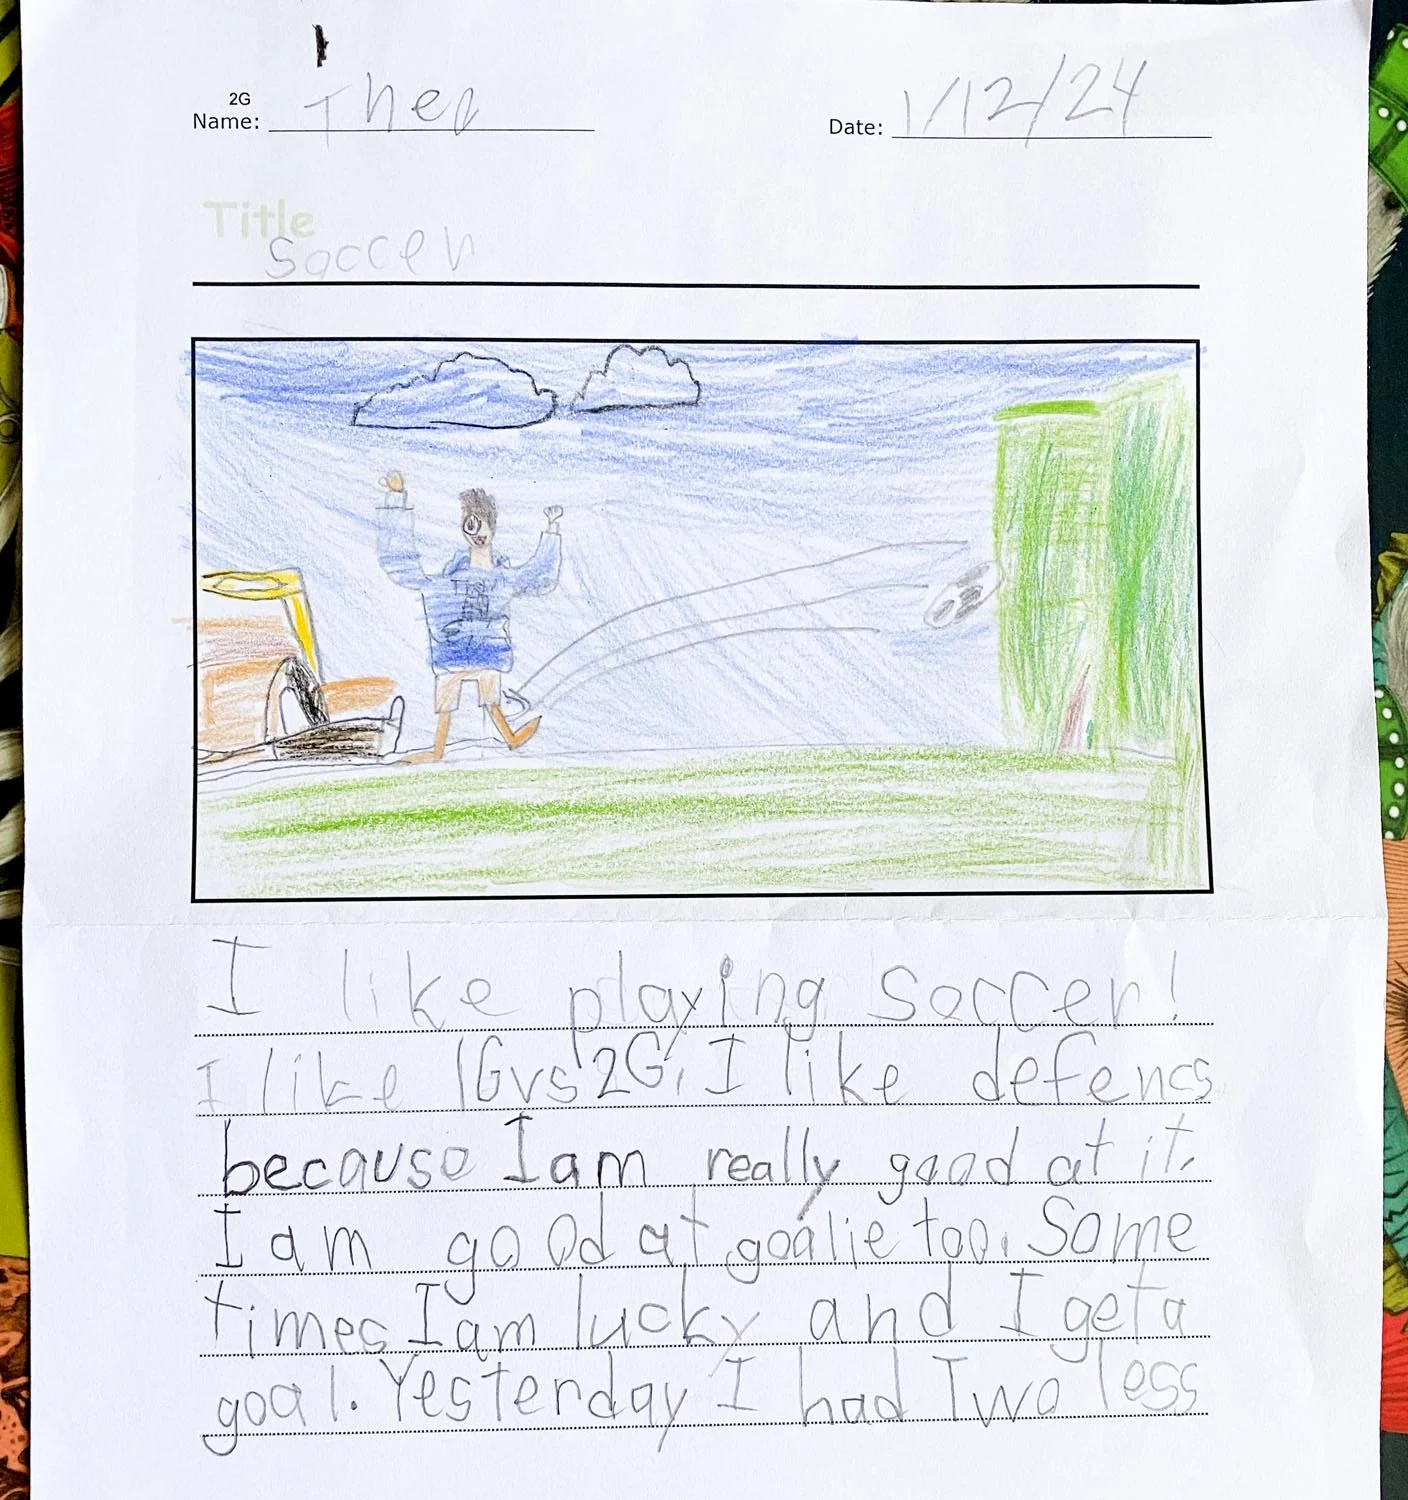 2G
Name: Theo
Date: 1/12/24
Title
Soccer
I like playing soccer!
I like 1G vs 2G. I like defencs
because I am really good at it.
I am good at goalie too. Some
times I am lucky and I get a
goal. Yesterday I had Two less